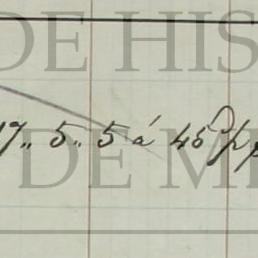 DE HIS
17,, 5,, 5 á 45 p
DE ME